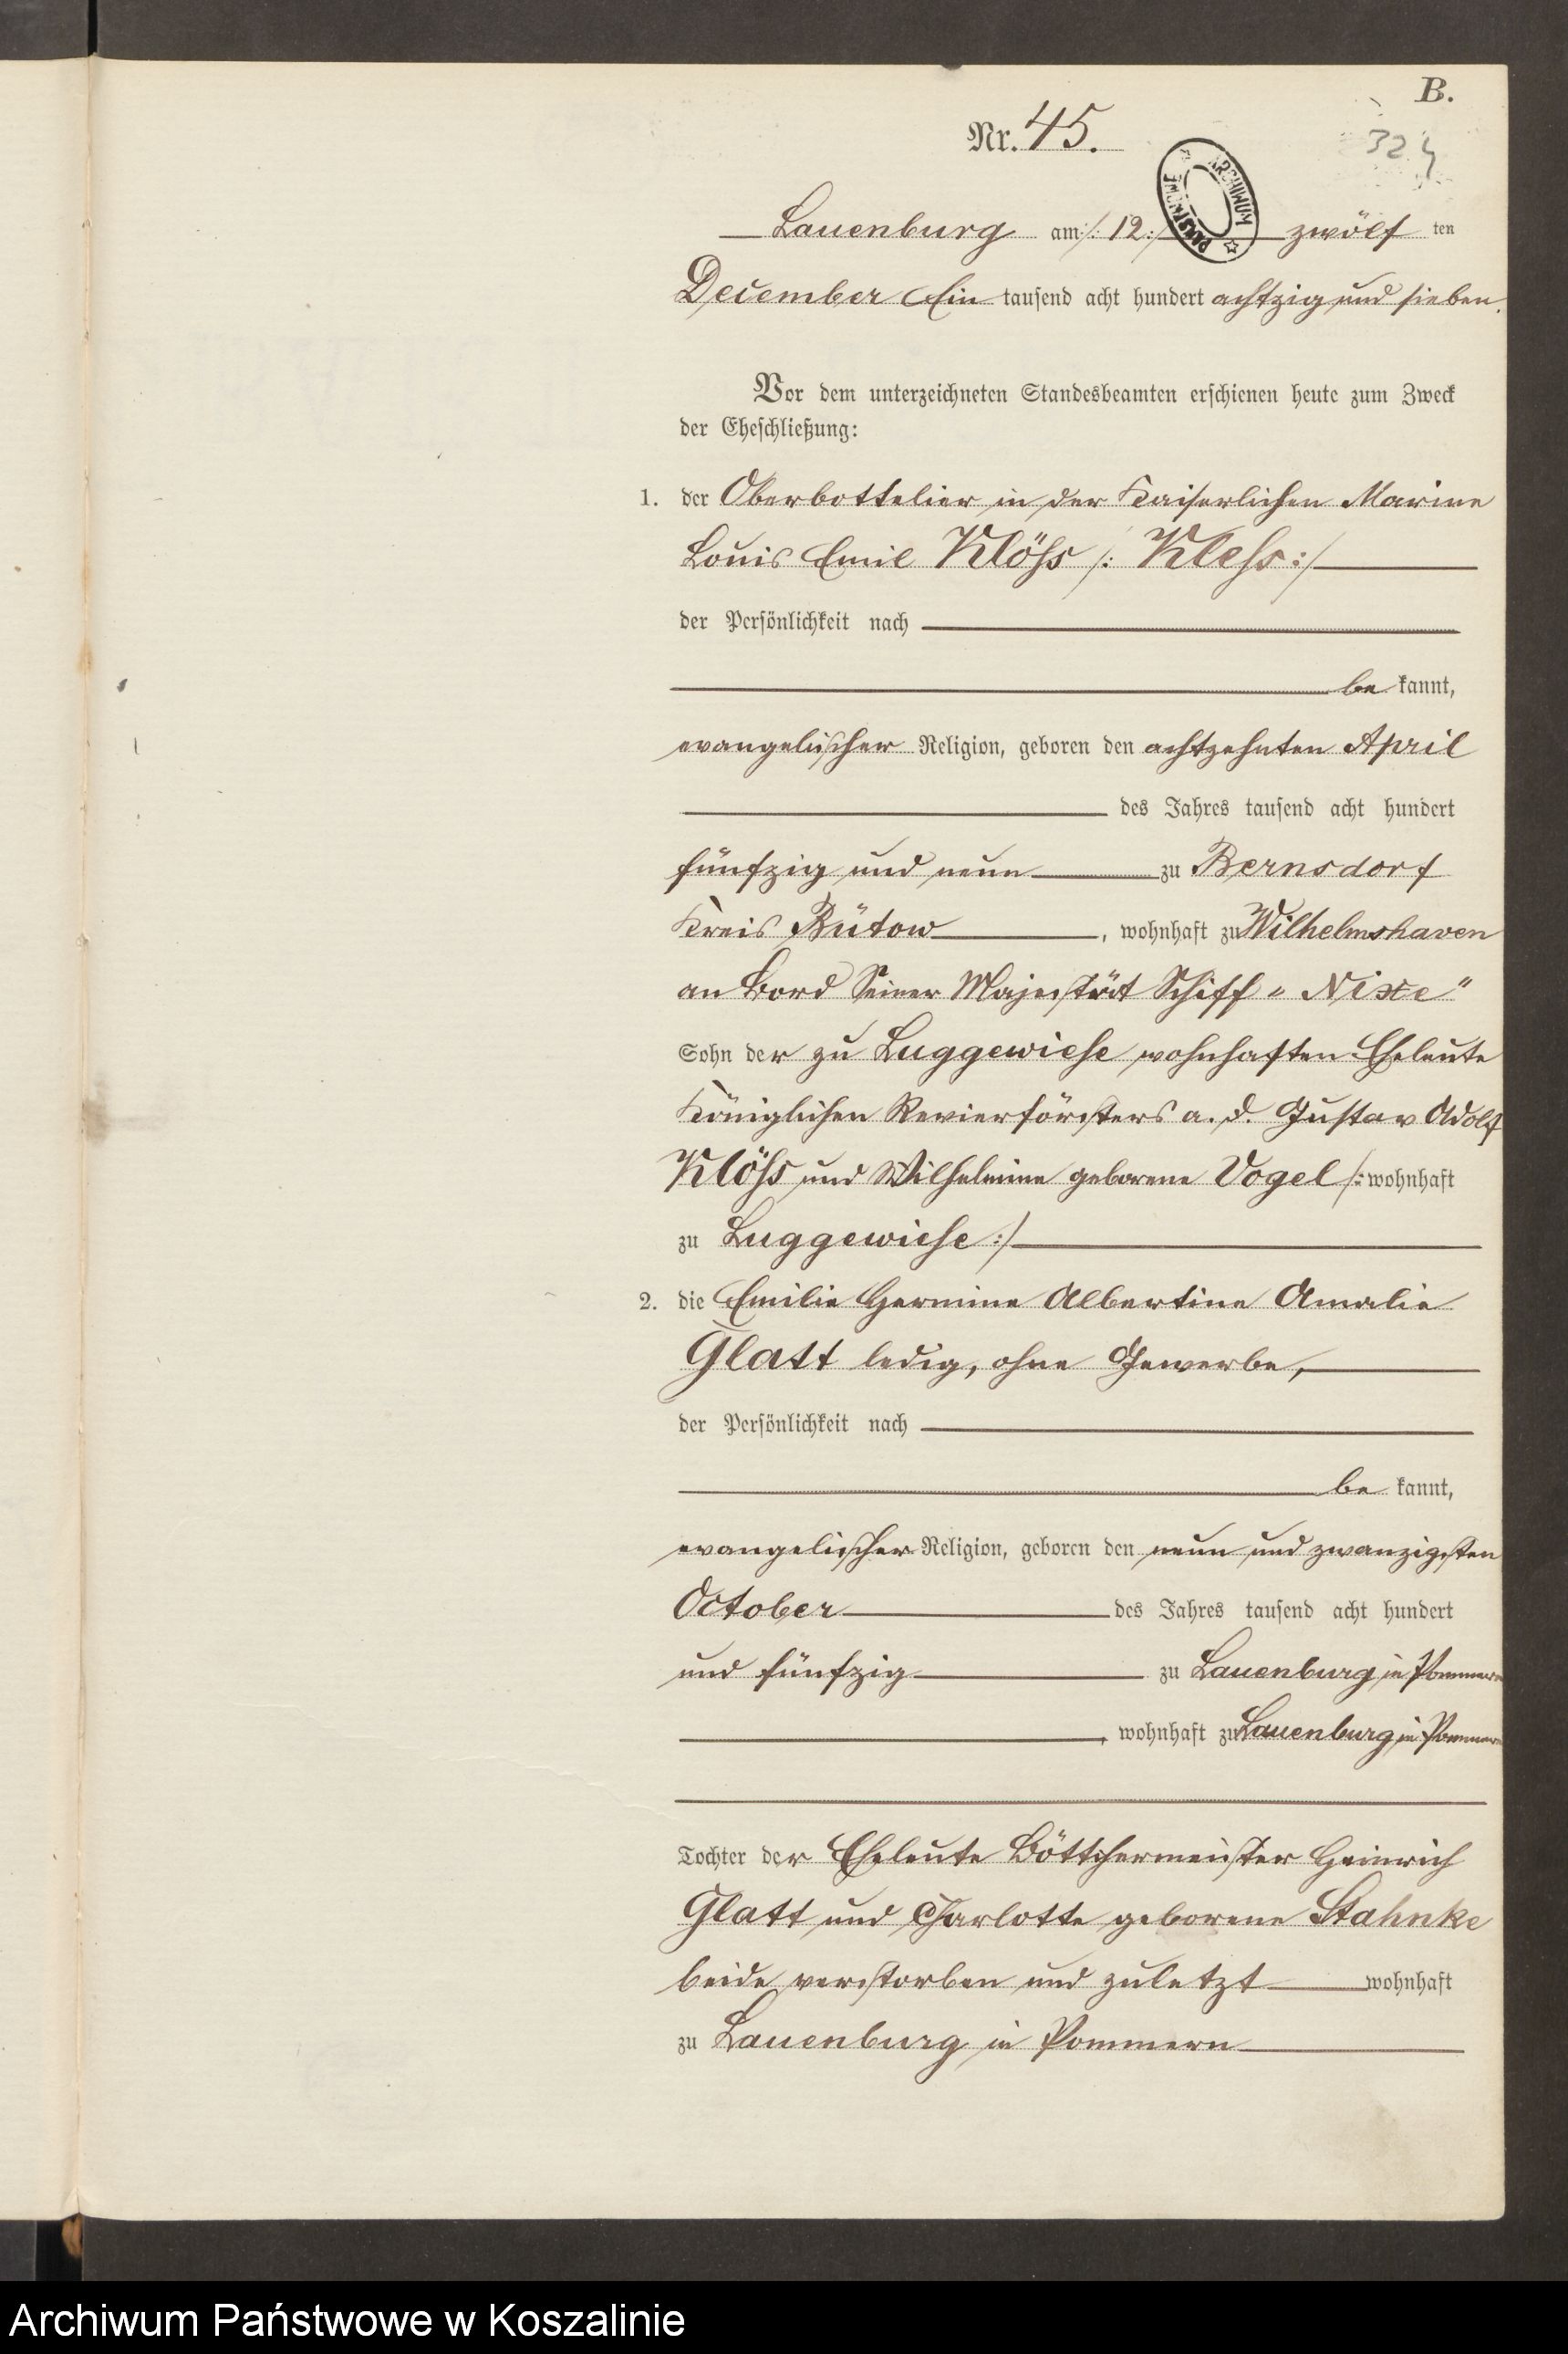 B.
Nr. 45.
324
ARCHIWUM PAŃSTWOWE
Lauenburg am /: 12 :/ zwölf ten
December Ein tausend acht hundert achtzig und sieben.
Vor dem unterzeichneten Standesbeamten erschienen heute zum Zweck
der Eheschließung:
1. der Oberbottelier in der Kaiserlichen Marine
Louis Emil Klöß /: Kleß :/
der Persönlichkeit nach
be kannt,
evangelischer Religion, geboren den achtzehnten April
des Jahres tausend acht hundert
fünfzig und neun zu Bernsdorf
Kreis Bütow, wohnhaft zu Wilhelmshaven
an Bord Seiner Majestät Schiff „Nixe"
Sohn der zu Luggewiese wohnhaften Eheleute
Königlichen Revierförsters a. D. Gustav Adolf
Klöß und Wilhelmine geborene Vogel /: wohnhaft
zu Luggewiese :/
2. die Emilie Hermine Albertine Amalie
Glatt ledig, ohne Gewerbe,
der Persönlichkeit nach
be kannt,
evangelischer Religion, geboren den neun und zwanzigsten
October des Jahres tausend acht hundert
und fünfzig zu Lauenburg in Pommern
, wohnhaft zu Lauenburg in Pommern
Tochter der Eheleute Böttchermeister Heinrich
Glatt und Charlotte geborene Stahnke
beide verstorben und zuletzt wohnhaft
zu Lauenburg in Pommern
Archiwum Państwowe w Koszalinie